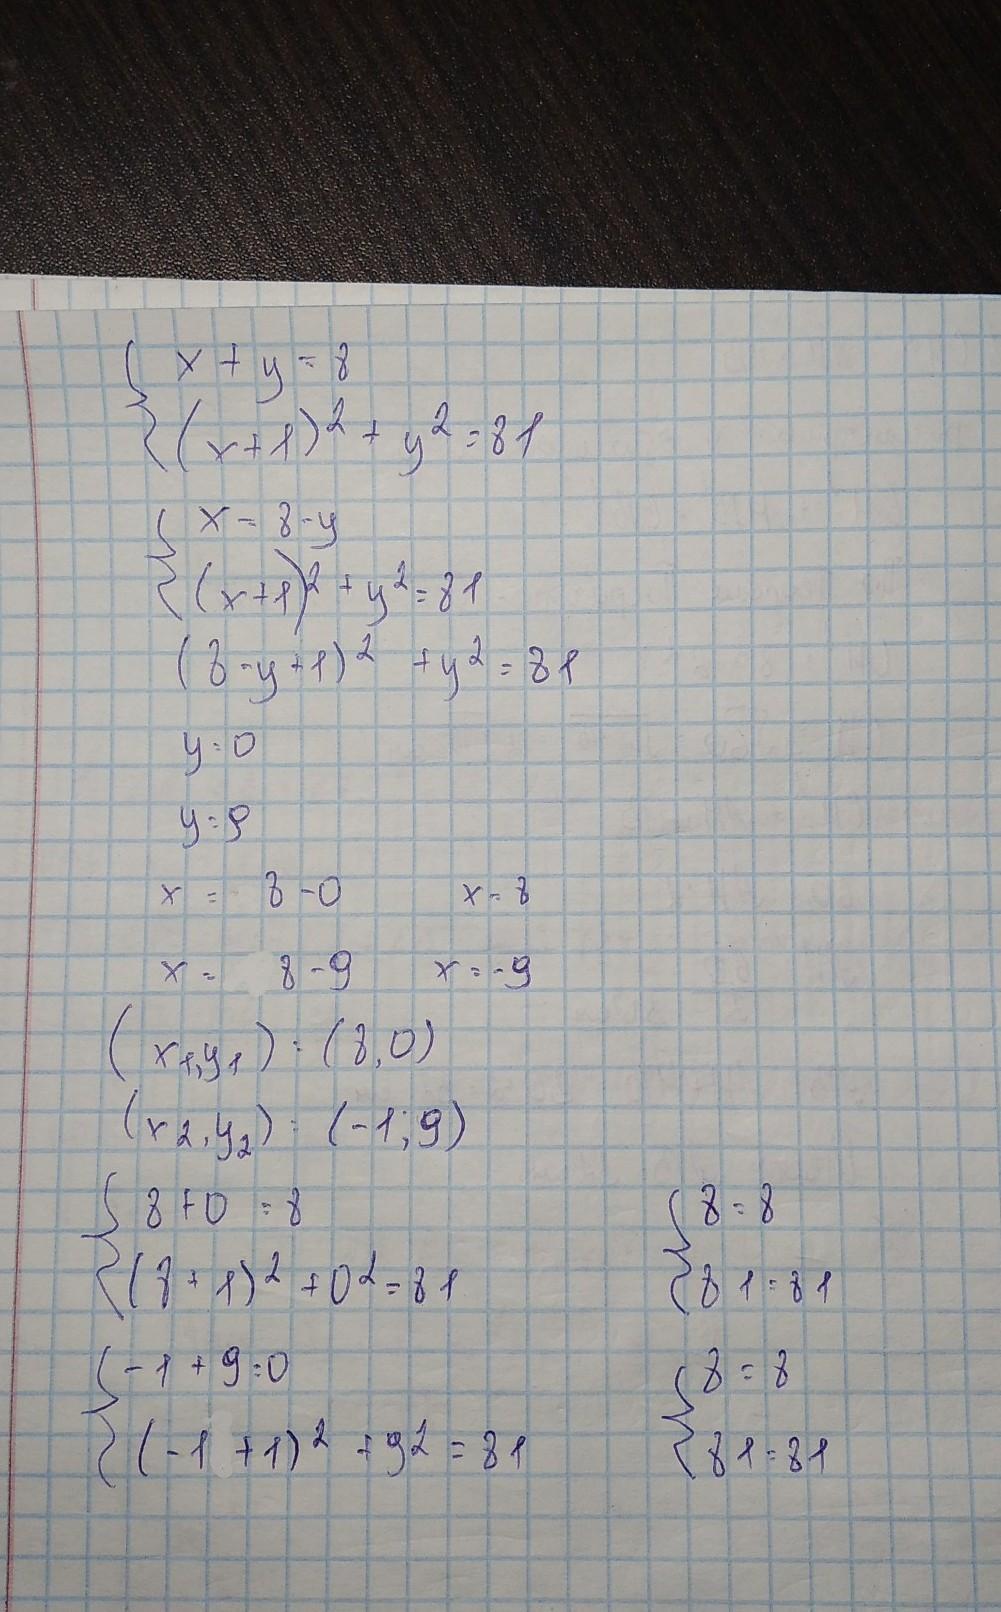 x + y = 8
(x+1)² + y² = 81
x = 8-y
(x+1)² + y² = 81
(8-y+1)² + y² = 81
y = 0
y = 9
x = 8-0 x = 8
x = 8-9 x = -9
(x₁,y₁) = (8,0)
(x₂,y₂) = (-1;9)
8+0 = 8 8 = 8
(8+1)² + 0² = 81 81 = 81
-1+9 = 0 8 = 8
(-1+1)² + 9² = 81 81 = 81